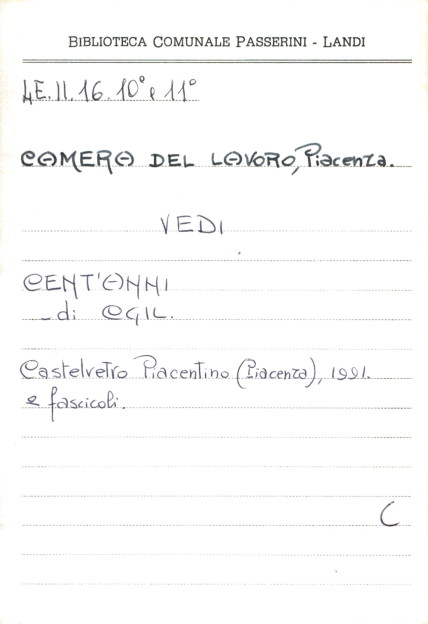 BIBLIOTECA COMUNALE PASSERINI - LANDI
4E.II.16.10° e 11°
CAMERA DEL LAVORO, Piacenza.
VEDI
CENT'ANNI
_di CGIL.
Castelvetro Piacentino (Piacenza), 1991.
e fascicoli.
C